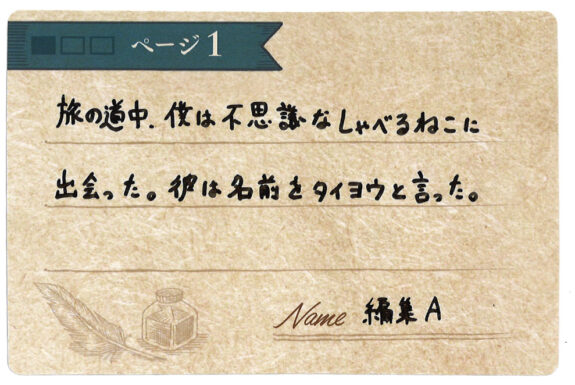 ページ1
旅の道中、僕は不思議なしゃべるねこに
出会った。彼は名前をタイヨウと言った。
Name 編集A